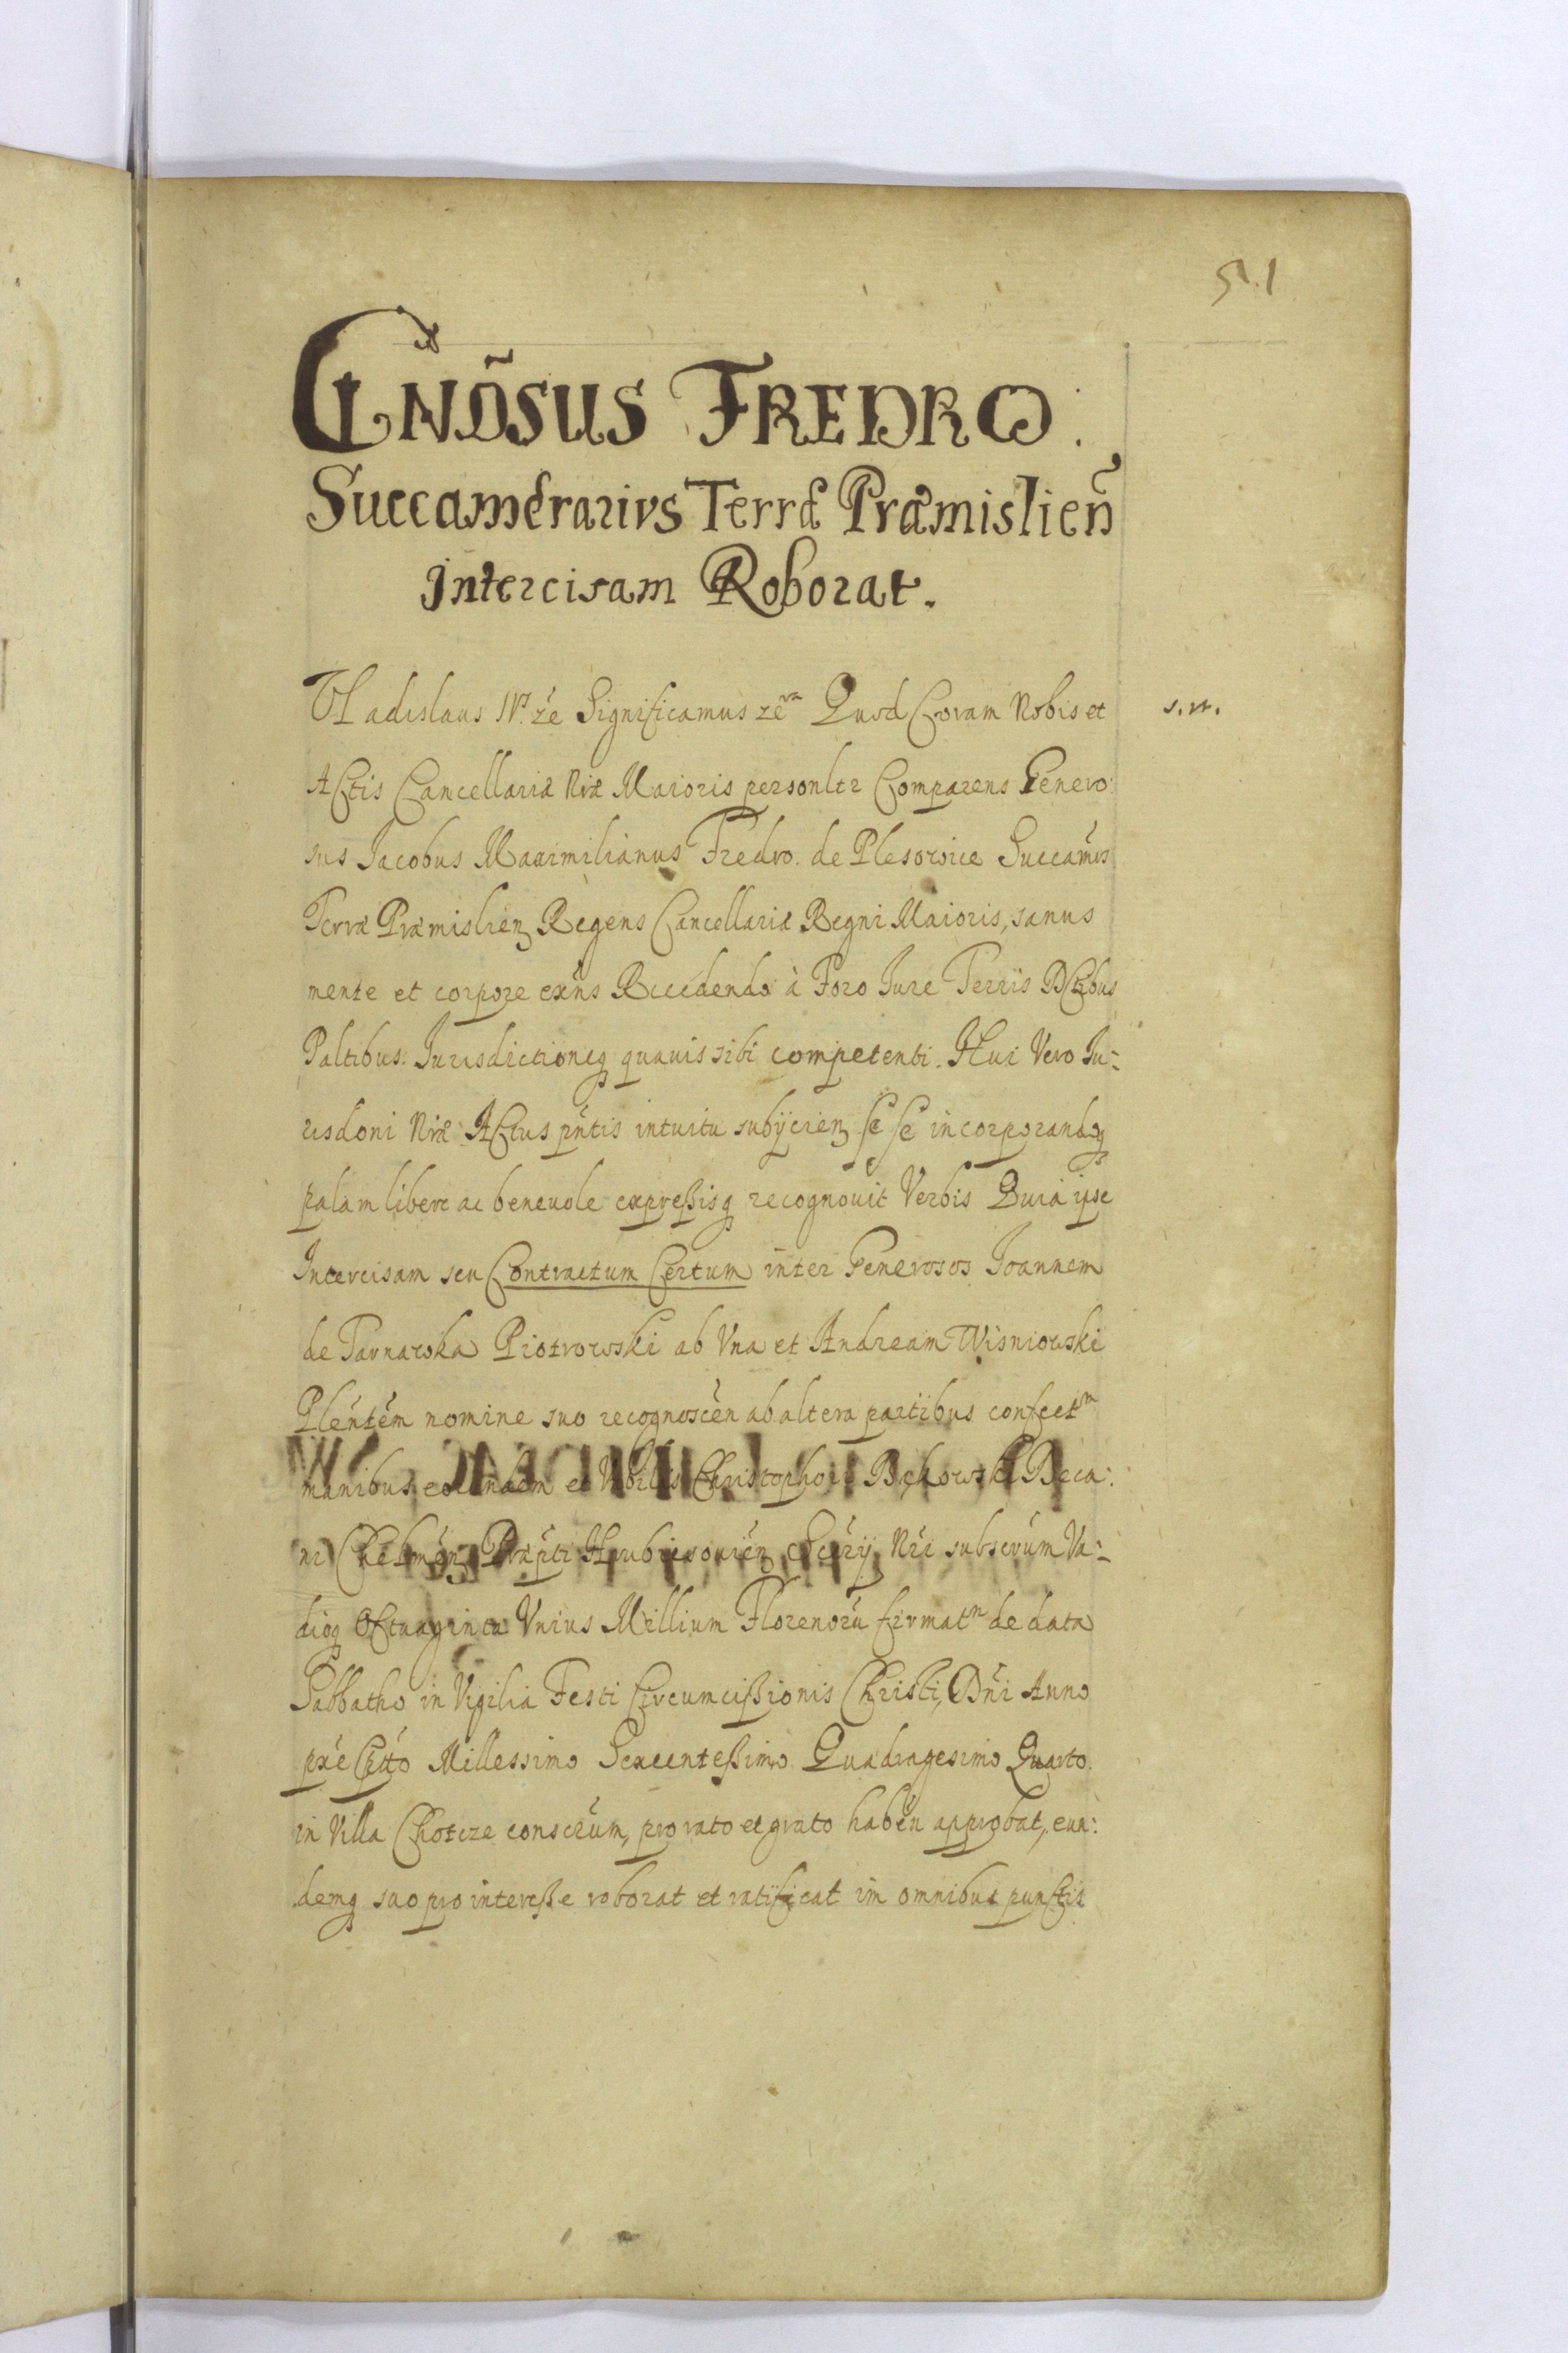 51
GNõSUS FREDRO.
Succamerarius Terræ Præmislien̄
Intercisam Roborat.
Vladislaus IV. ze Significamus ze Quod Coram Nobis et
s. n.
Actis Cancellariæ Nræ Maioris personltr Comparens Genero:
sus Jacobus Maximilianus Fredro. de Plesowice Succamrs
Terræ Præmislien Regens Cancellariæ Regni Maioris, sanus
mente et corpore exn̄s Recedendo à Foro Jure Terris Dctbus
Paltibus: Jurisdictioneq quauis sibi competenti. Hui Vero Ju:
risdoni Nræ Actus pn̄tis intuitu subijcien sese incorporandoq
palam libere ac beneuole expreßisq recognouit Verbis Quia ipse
Intercisam seu Contractum Certum inter Generosos Joannem
de Tarnawka Piotrowski ab Vna et Andream Wisniowski
Plentem nomine suo recognoscen ab altera partibus confectm
manibus eorundem et Nobilis Christophori Bąkowski Deca:
ni Chelmen Præpti Hrubiesouien Secrij Nri subscrum Va:
dioq Octuaginta Vnius Millium Florenoru firmatm de data
Sabbatho in Vigilia Festi Circumcißionis Christi, Dn̄i Anno
præ Millessimo Sexcenteßimo Quadragesimo Quarto
in Villa Chotcze conscrum, pro rato et grato haben approbat, eun:
demq suo pro intereße roborat et ratificat in omnibus punctis